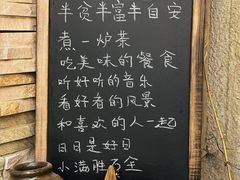 半贫半富半自安
煮一炉茶
吃美味的餐食
听好听的音乐
看好看的风景
和喜欢的人一起
日日是好日
小满胜万全